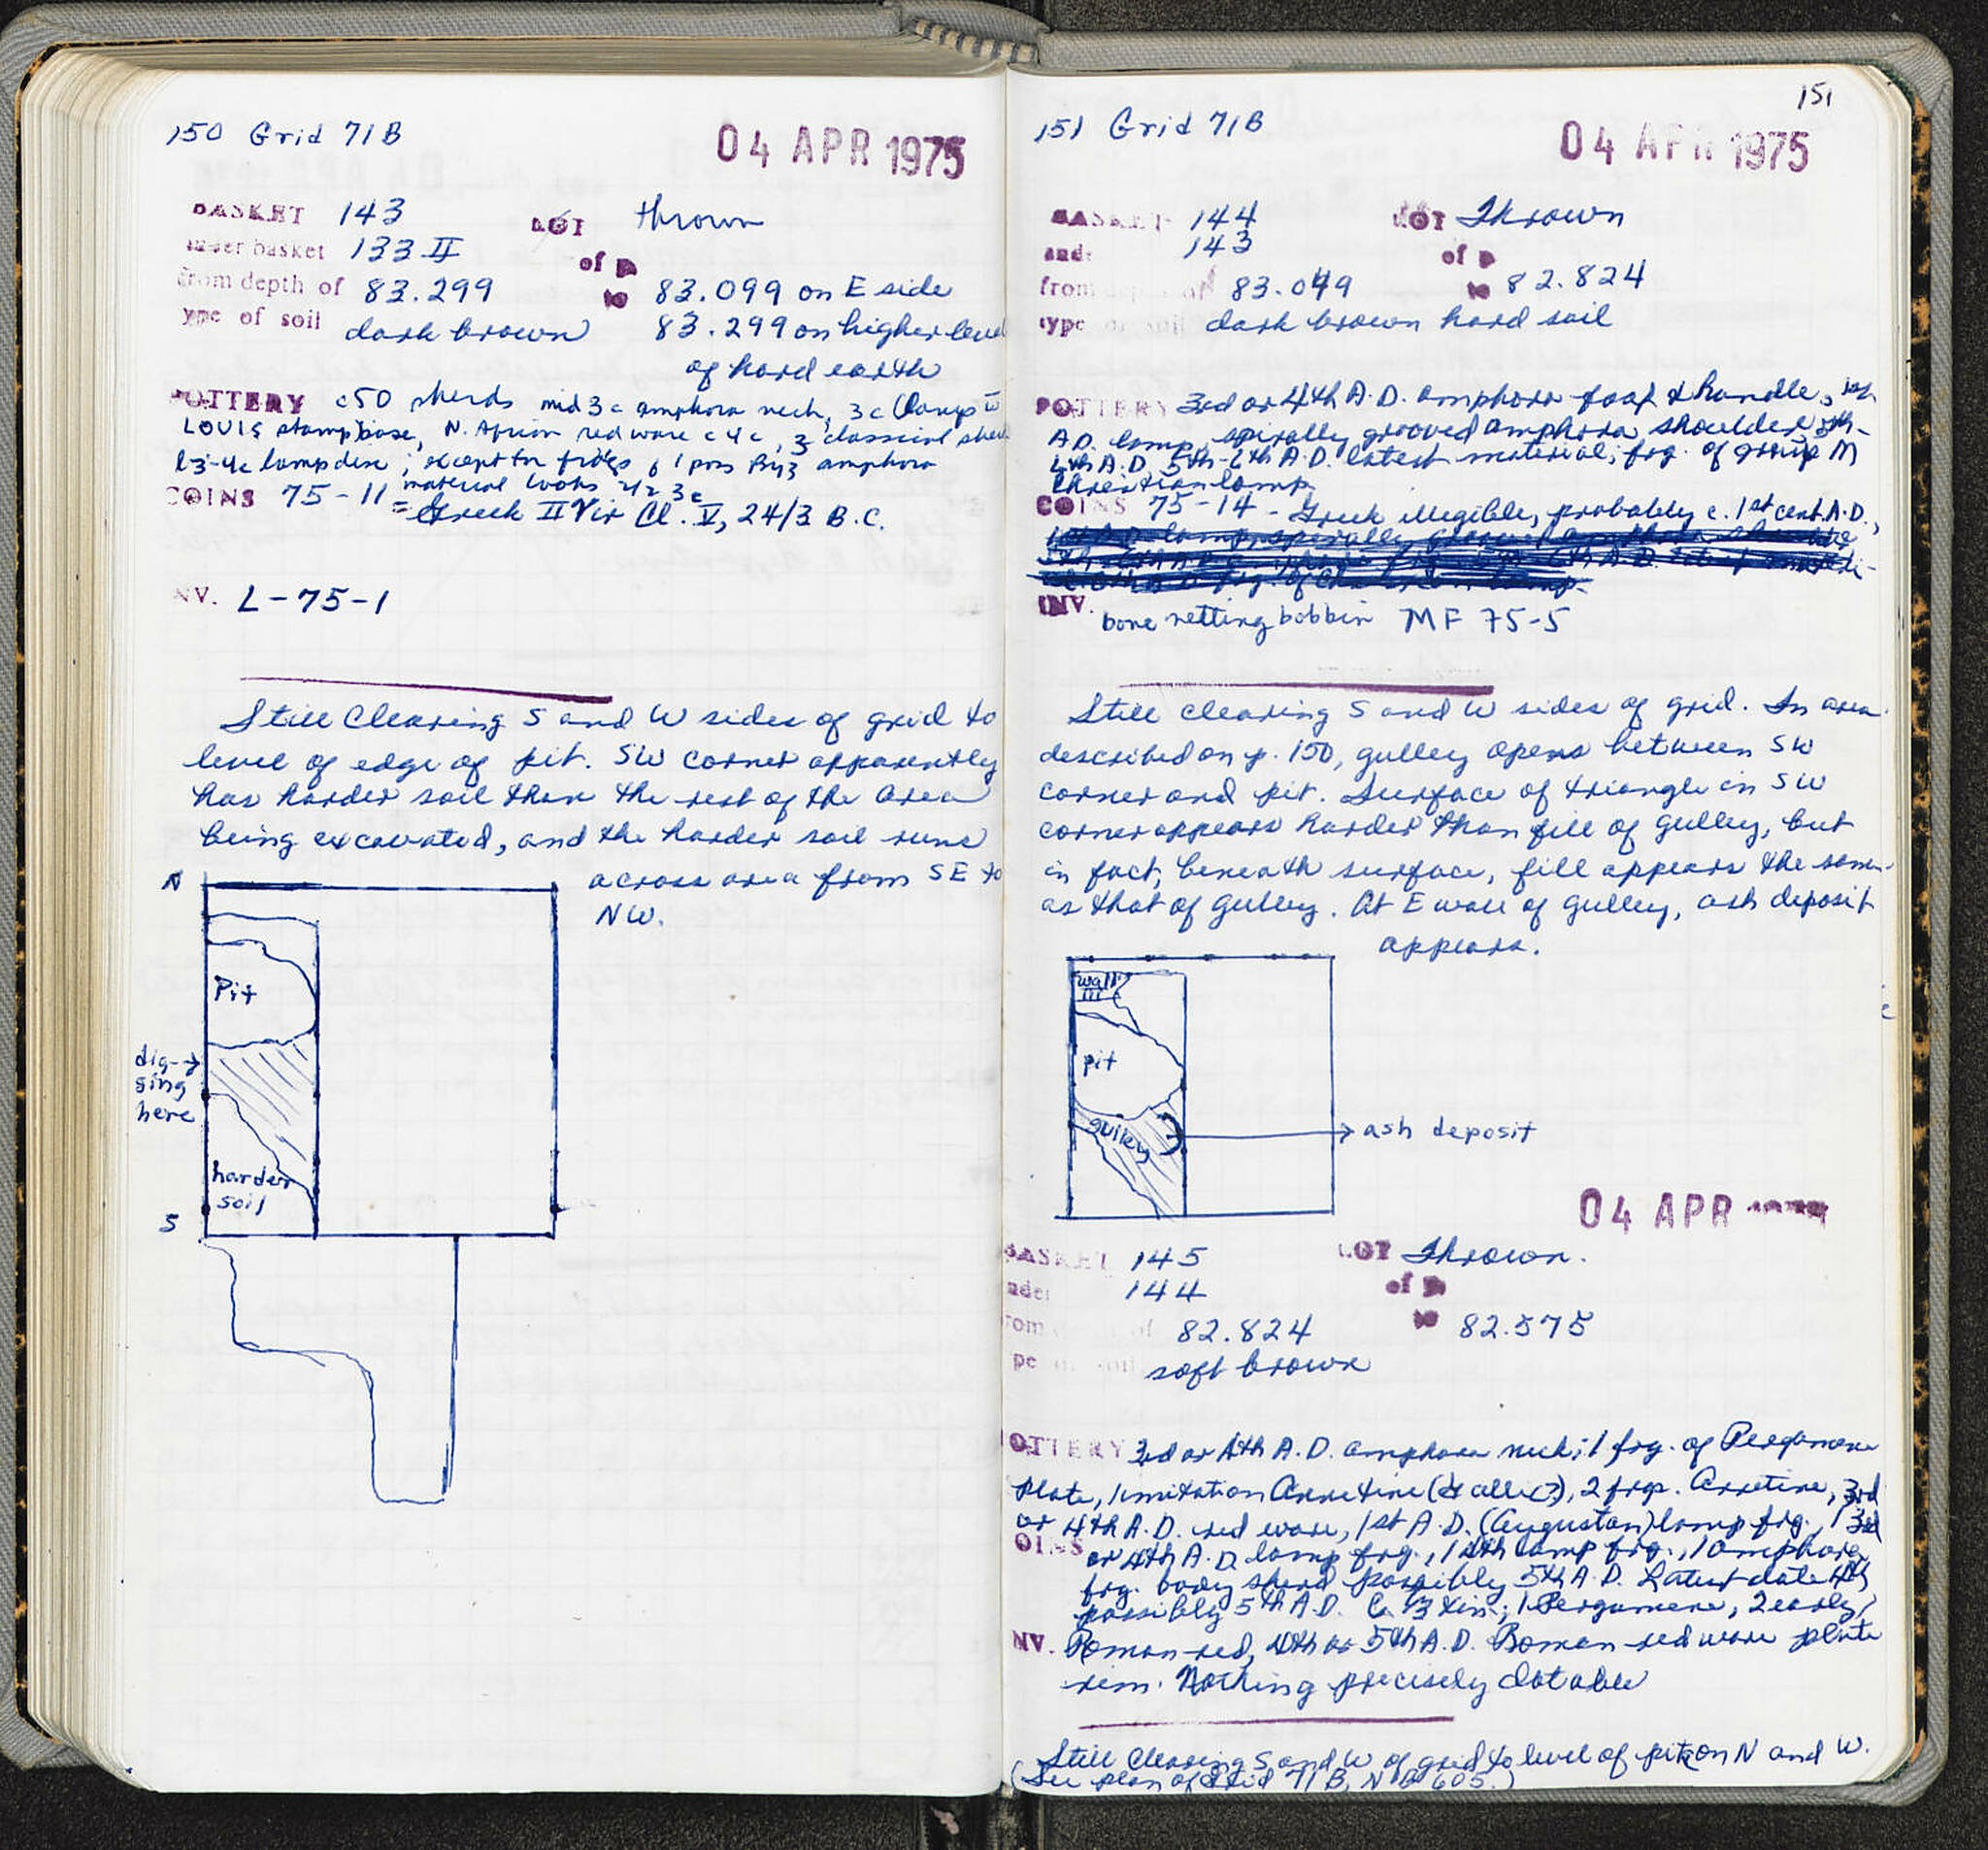 150 Grid 71B
04 APR 1975
BASKET 143 LOT thrown
under basket 133 II of P
from depth of 83.299 to 83.099 on E side
type of soil dark brown 83.299 on higher level
of hard earth
POTTERY c50 sherds mid 3c amphora neck, 3c lamp
LOUIS stamp base, N. African red ware c4c, 3 classical
l3-4c lamp disc; except for frags 1 poss Byz amphora
material looks 3c
COINS 75-11 = Greek II Vir Cl. V, 24/3 B.C.
INV. L-75-1
Still clearing S and W sides of grid to
level of edge of pit. SW corner apparently
has harder soil than the rest of the area
being excavated, and the harder soil runs
across area from SE to
NW.
N
Pit
dig-→
ging
here
harder
soil
S
151
151 Grid 71B
04 APR 1975
BASKET 144 LOT Thrown
under 143 of P
from depth of 83.049 to 82.824
type of soil dark brown hard soil
POTTERY 3rd or 4th A.D. amphora foot & handle, 1st
A.D. lamp, spirally grooved amphora shoulder 5th-
6th A.D., 5th-6th A.D. latest material, frg. of group M
Christian lamp
COINS 75-14 - Greek illegible, probably c. 1st cent. A.D.,
INV. bone netting bobbin MF 75-5
Still clearing S and W sides of grid. In area
described on p. 150, gulley opens between SW
corner and pit. Surface of triangle in SW
corner appears harder than fill of gulley, but
in fact, beneath surface, fill appears the same
as that of gulley. At E wall of gulley, ash deposit
appears.
wall
III
pit
gulley
→ ash deposit
04 APR
BASKET 145 LOT Thrown.
under 144 of P
from depth of 82.824 to 82.575
type of soil soft brown
POTTERY 3rd or 4th A.D. amphora neck; 1 frg. of Pergamene
plate, 1 imitation Arretine (Gallic?), 2 frgs. Arretine, 3rd
or 4th A.D. red ware, 1st A.D. (Augustan) lamp frg., 1 3rd
COINS or 4th A.D. lamp frg., 1 4th lamp frg., 1 amphora
frg. body sherd possibly 5th A.D. Latest date 4th
possibly 5th A.D. 1 Pergamene, 2 early
INV. Roman red, 4th or 5th A.D. Roman red ware plate
rim. Nothing precisely datable
Still clearing S and W of grid to level of pit on N and W.
(See plan of Grid 71B, NB 605.)